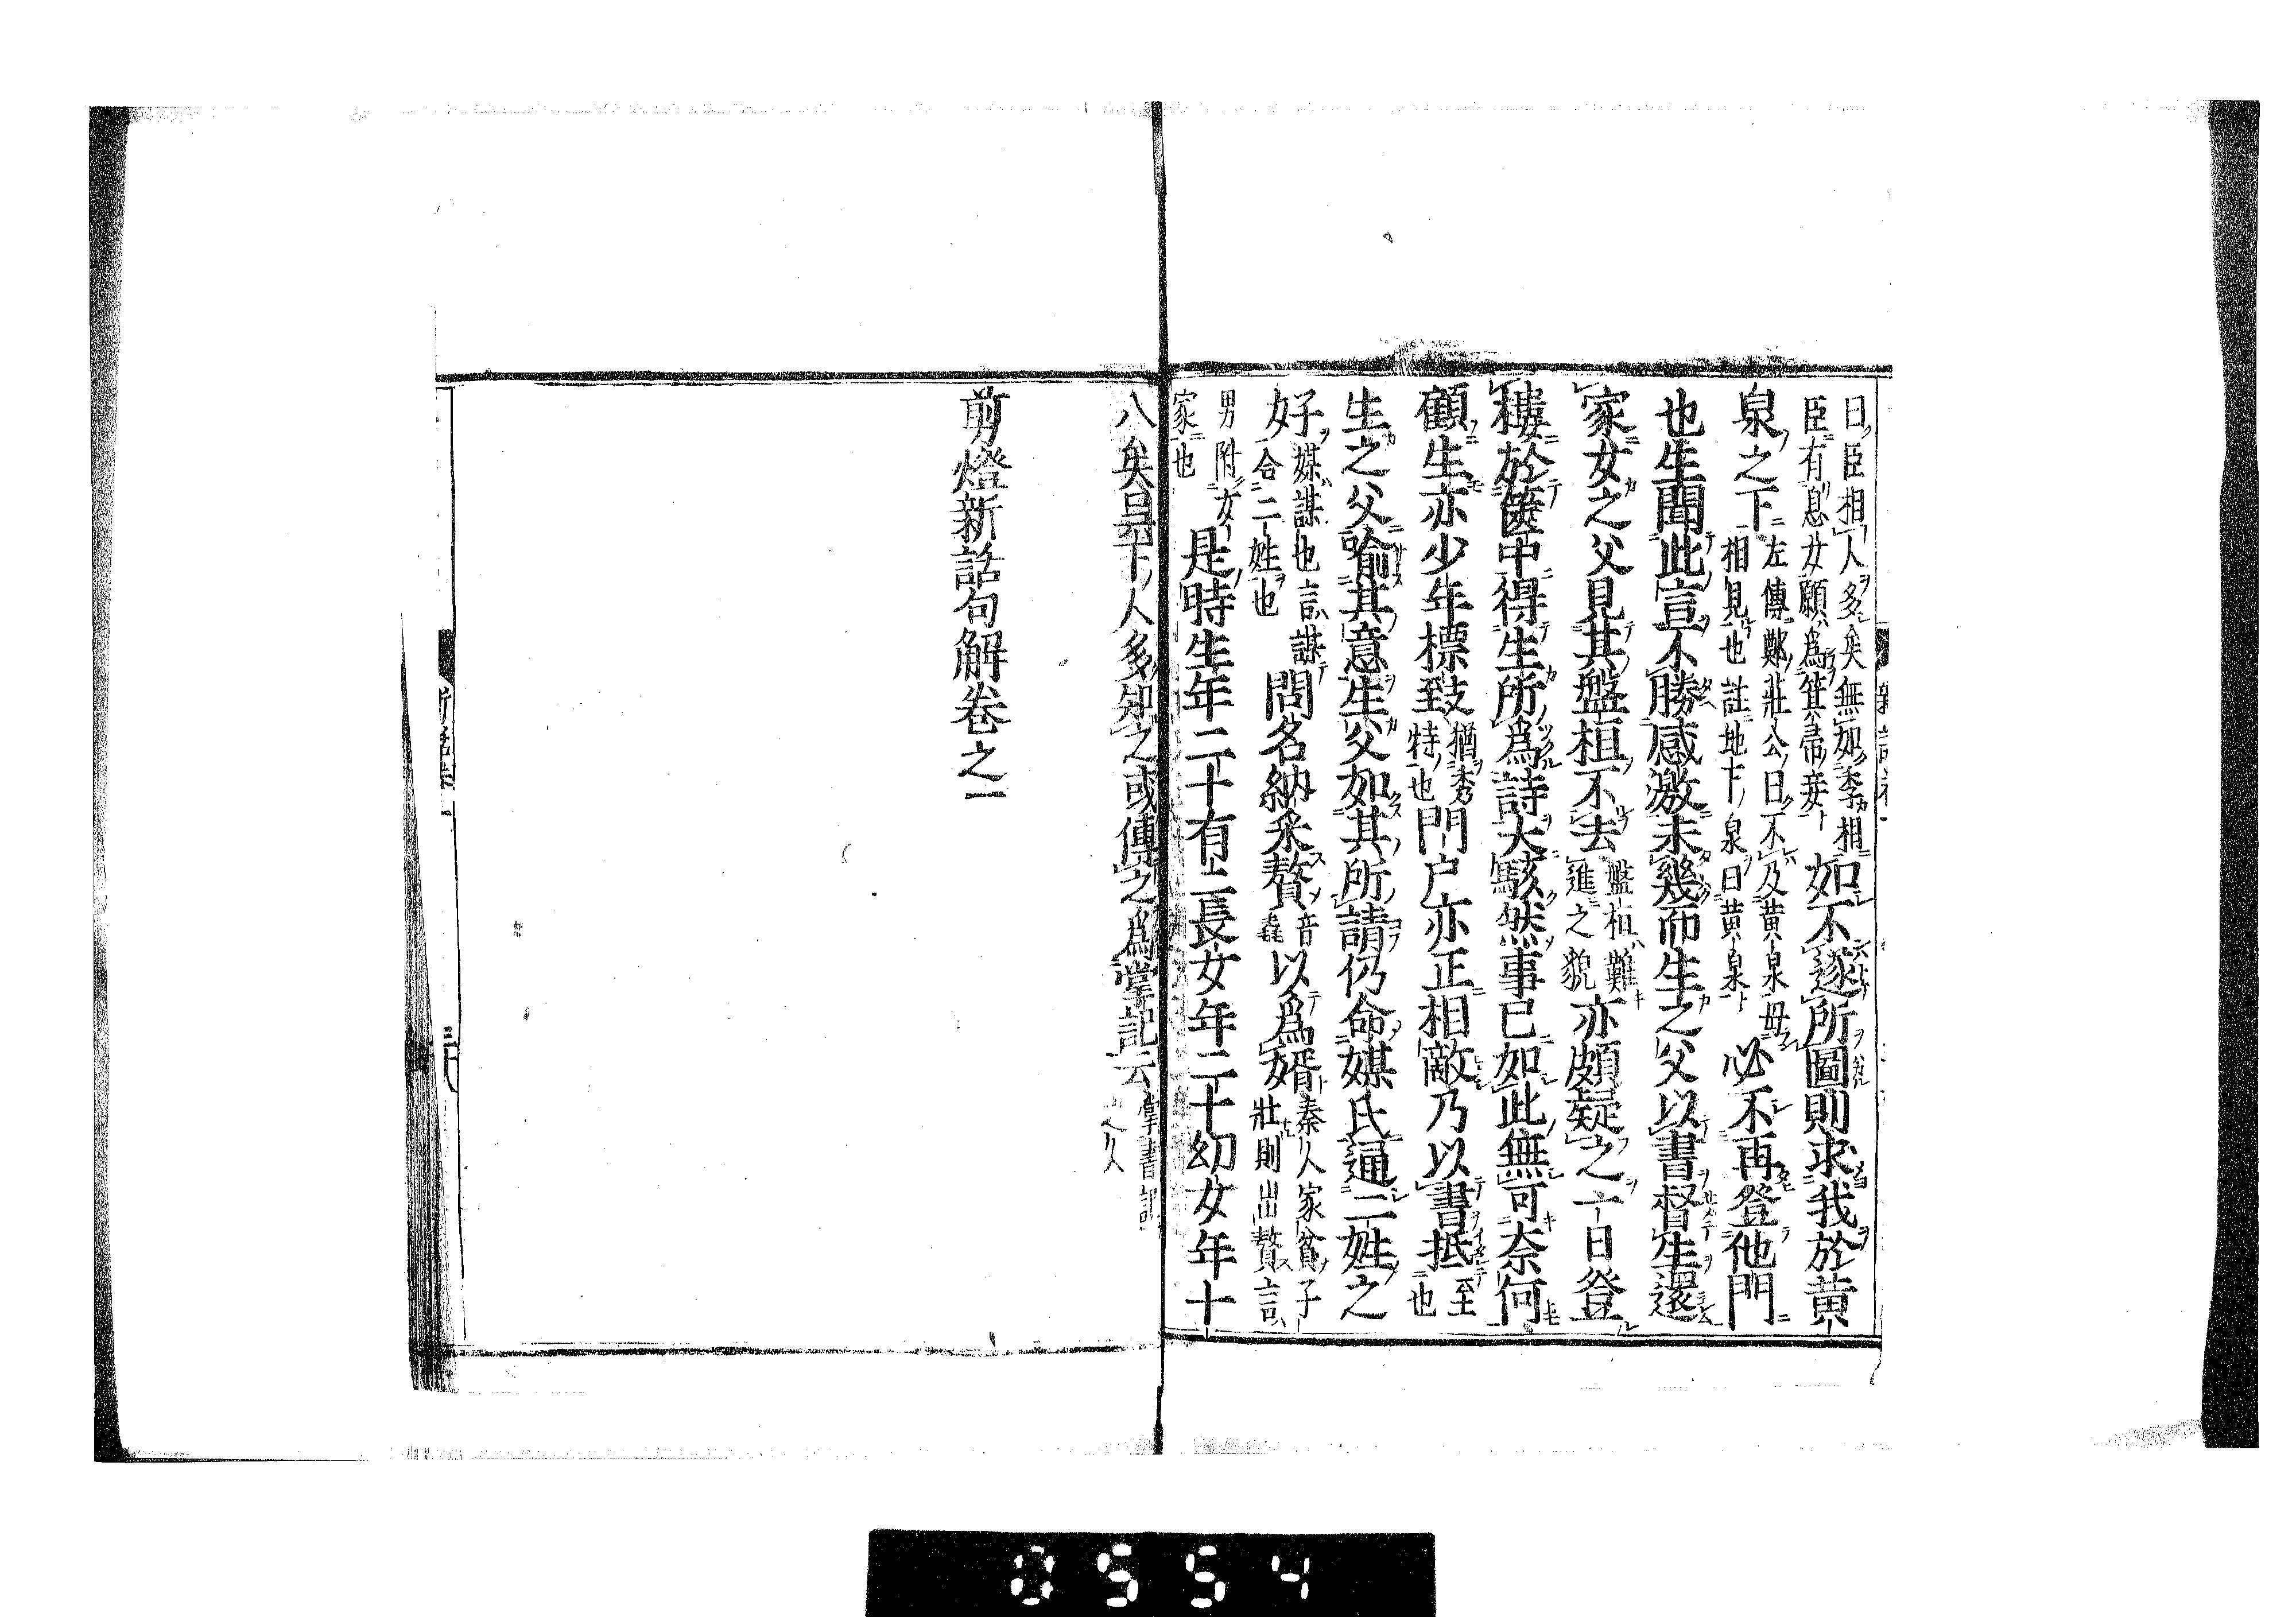 曰臣相人多矣無如季相臣有息女願爲箕帚妾如不遂所圖則求我於黄
泉之下左傳鄭莊公曰不及黄泉毋相見也註地下泉曰黄泉必不再登他門
也生聞此言不勝感激未幾而生之父以書督生還
家女之父見其盤桓不去盤桓難進之貌亦頗疑之一日登
樓於篋中得生所爲詩大駭然事已如此無可奈何
顧生亦少年標致猶秀特也門户亦正相敵乃以書抵至也
生之父喻其意生父如其所請仍命媒氏通二姓之
好媒謀也言謀合二姓也問名納采贅音毳以爲婿秦人家貧子壯則出贅言
男附女家也是時生年二十有二長女年二十幼女年十
八矣吴下人多知之或傳之爲掌記云掌書記
剪燈新話句解卷之一
0554